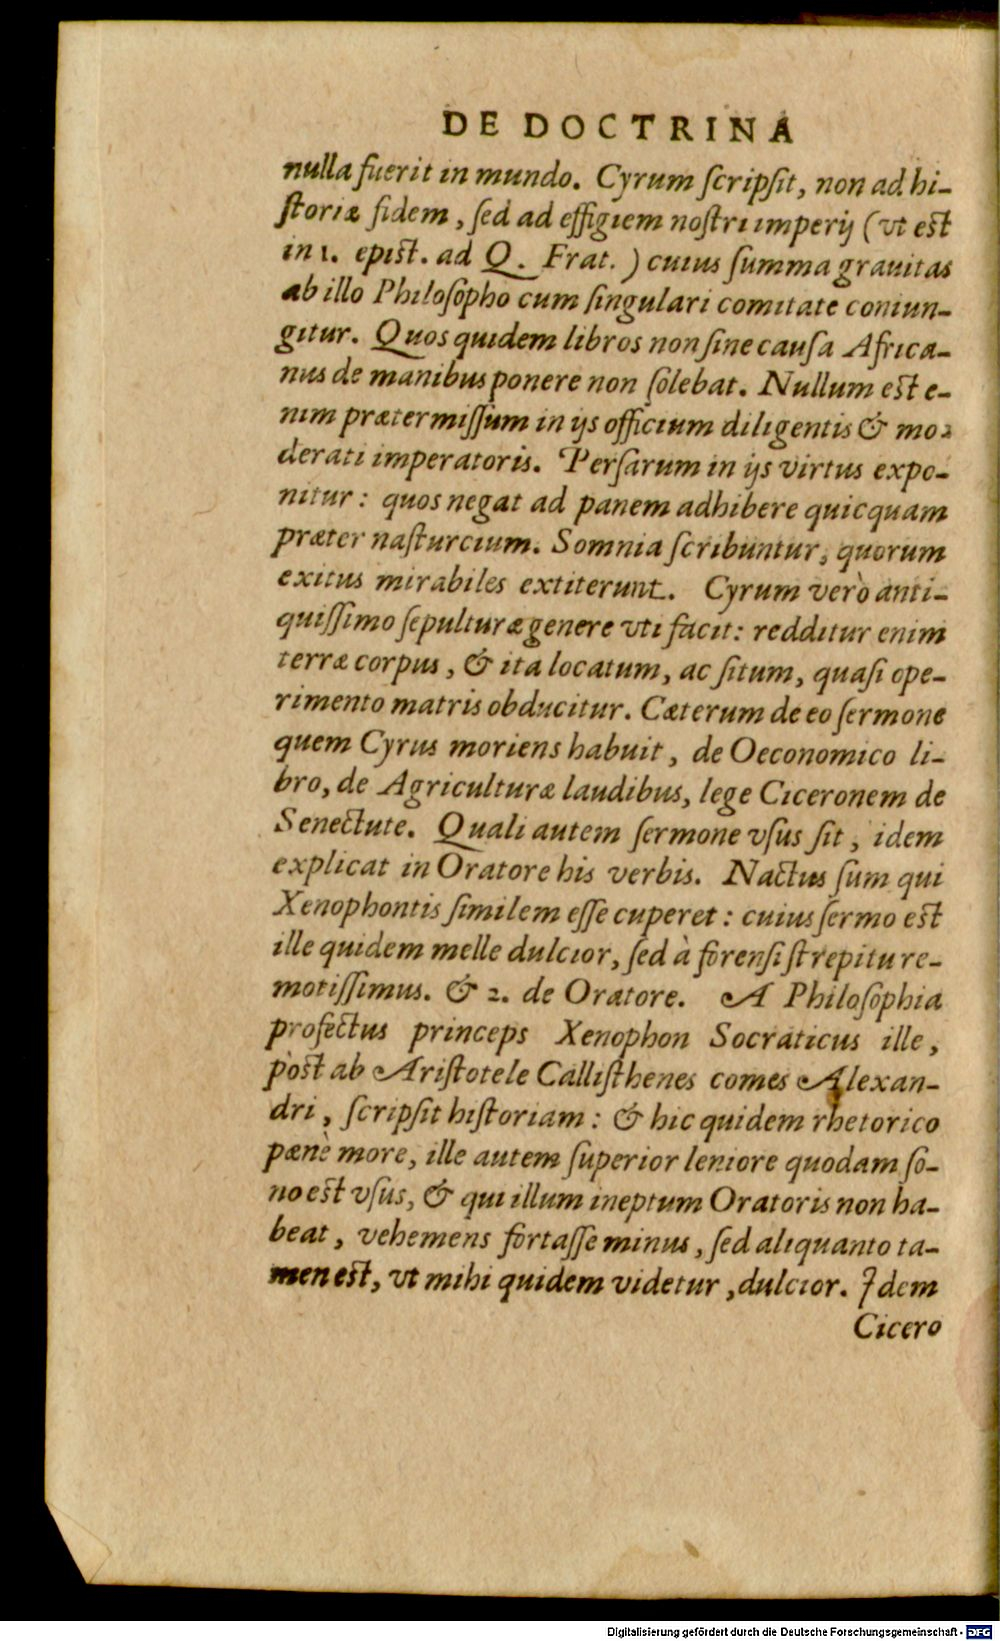 DE DOCTRINA
nulla fuerit in mundo. Cyrum ſcripſit, non ad hi-
ſtoriæ fidem, ſed ad effigiem noſtri imperij (vt eſt
in 1. epiſt. ad Q. Frat.) cuius ſumma grauitas
ab illo Philoſopho cum ſingulari comitate coniun-
gitur. Quos quidem libros non ſine cauſa Africa-
nus de manibus ponere non ſolebat. Nullum eſt e-
nim prætermiſſum in ijs officium diligentis & mo-
derati imperatoris. Perſarum in ijs virtus expo-
nitur: quos negat ad panem adhibere quicquam
præter naſturcium. Somnia ſcribuntur, quorum
exitus mirabiles extiterunt. Cyrum verò anti-
quiſſimo ſepulturæ genere vti facit: redditur enim
terræ corpus, & ita locatum, ac ſitum, quaſi ope-
rimento matris obducitur. Cæterum de eo ſermone
quem Cyrus moriens habuit, de Oeconomico li-
bro, de Agriculturæ laudibus, lege Ciceronem de
Senectute. Quali autem ſermone vſus ſit, idem
explicat in Oratore his verbis. Nactus ſum qui
Xenophontis ſimilem eſſe cuperet: cuius ſermo eſt
ille quidem melle dulcior, ſed à forenſi ſtrepitu re-
motiſſimus. & 2. de Oratore. A Philoſophia
profectus princeps Xenophon Socraticus ille,
pòſt ab Ariſtotele Calliſthenes comes Alexan-
dri, ſcripſit hiſtoriam: & hic quidem rhetorico
pænè more, ille autem ſuperior leniore quodam ſo-
no eſt vſus, & qui illum ineptum Oratoris non ha-
beat, vehemens fortaſſe minus, ſed aliquanto ta-
men eſt, vt mihi quidem videtur, dulcior. Idem
Cicero
Digitalisierung gefördert durch die Deutsche Forschungsgemeinschaft - DFG